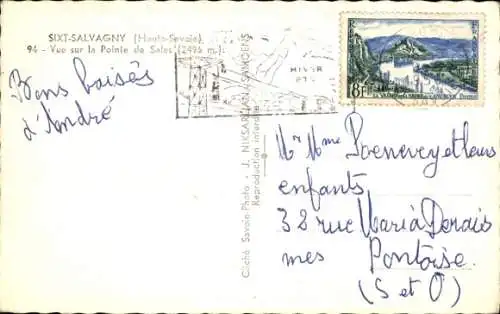 SIXT-SALVAGNY (Haute-Savoie)
94 - Vue sur la Pointe de Sales (2496 m.)
Bons baisés
d'André
SAMOENS
HIVER
ETE
8F
Cliché Savoie-Photo - J. NIKSARLIAN, SAMOENS
Reproduction interdite
Mr Mme Poeneveyetleurs
enfants
32 rue Maria Derais
mes Pontoise
(S et O)